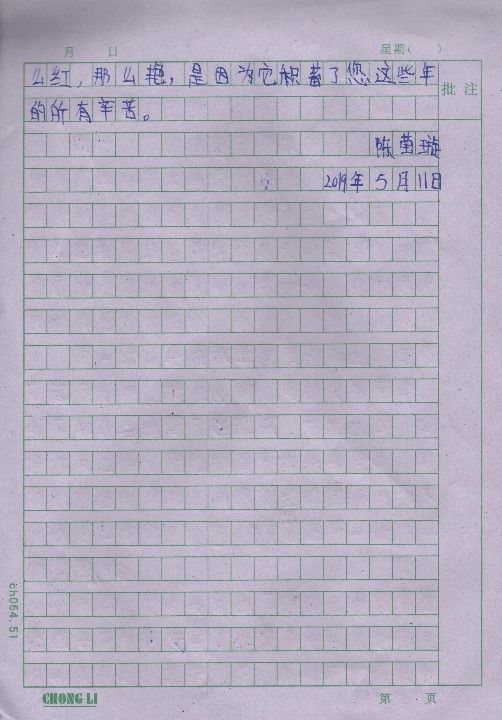 月 日 星期( )
么红，那么艳，是因为它积蓄了您这些年
批注
的所有辛苦。
陈萤璇
2019年5月11日
ch064.51
CHONG LI 第 页